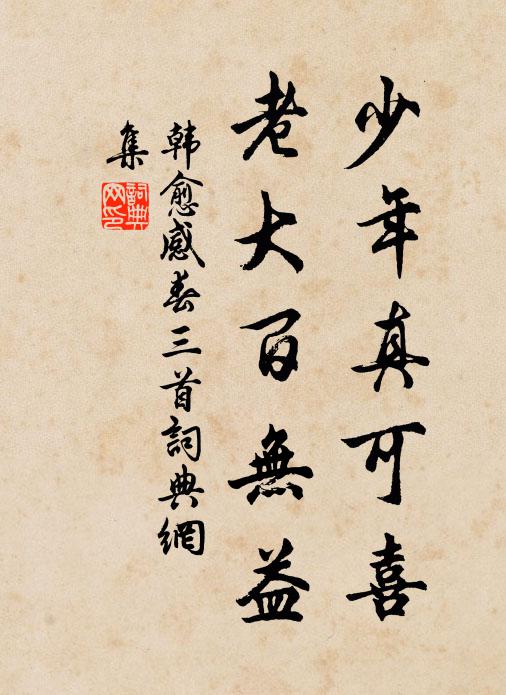 少年真可喜
老大百無益
韓愈感春三首詞典網
集
詞典网印